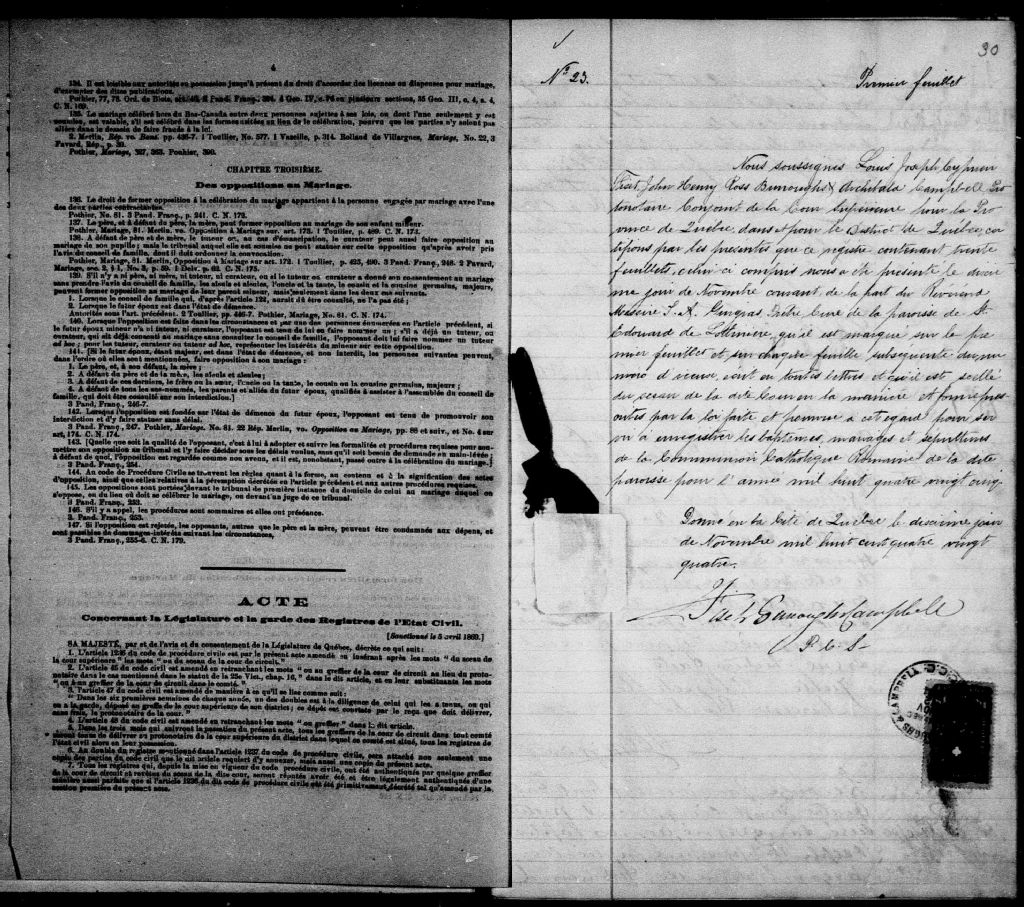 4
134. Il est loisible aux autorités en possession jusqu'à présent du droit d'accorder des licences ou dispenses pour mariage,
d'exempter des dites publications.
Pothier, 77, 78. Ord. de Blois, art. 40. 2 Pand. Franç., 4 Geo. IV, en plusieurs sections, 35 Geo. III, c. 4, s. 4,
C. N. 169.
135. Le mariage célébré hors du Bas-Canada entre deux personnes sujettes à ses lois, ou dont l'une seulement y est
soumise, est valable, s'il est célébré dans les formes usitées au lieu de la célébration, pourvu que les parties n'y soient pas
allées dans le dessein de faire fraude à la loi.
2. Merlin, Rép. vo. Bans. pp. 435-7. 1 Toullier, No. 577. 1 Vazeille, p. 314. Rolland de Villargues, Mariage, No. 22, 3
Favard, Rép., p. 39.
Pothier, Mariage, 327, 363. Pothier, 390.
CHAPITRE TROISIÈME.
Des oppositions au Mariage.
136. Le droit de former opposition à la célébration du mariage appartient à la personne engagée par mariage avec l'une
des deux parties contractantes.
Pothier, No. 81. 3 Pand. Franç., p. 241. C. N. 172.
137. Le père, et à défaut du père, la mère, peut former opposition au mariage de son enfant mineur.
Pothier, Mariage, 81. Merlin. vo. Opposition à Mariage sur. art. 173. 1 Toullier, p. 489. C. N. 173.
138. A défaut de père et de mère, le tuteur or, au cas d'émancipation, le curateur peut aussi faire opposition au
mariage de son pupille; mais le tribunal auquel elle est soumise ne peut statuer sur cette opposition qu'après avoir pris
l'avis du conseil de famille, dont il doit ordonner la convocation.
Pothier, Mariage, 81. Merlin, Opposition à Mariage sur art. 172. 1 Toullier, p. 423, 490. 3 Pand. Franç., 248. 2 Favard,
Mariage, sec. 2, § 1, No. 3, p. 59. 1 Delv. p. 62. C. N. 175.
139. S'il n'y a ni père, ni mère, ni tuteur, ni curateur, ou si le tuteur ou curateur a donné son consentement au mariage
sans prendre l'avis du conseil de famille, les aïeuls et aïeules, l'oncle et la tante, le cousin et la cousine germains, majeurs,
peuvent former opposition au mariage de leur parent mineur, mais seulement dans les deux cas suivants.
1. Lorsque le conseil de famille qui, d'après l'article 122, aurait dû être consulté, ne l'a pas été;
2. Lorsque le futur époux est dans l'état de démence.
Autorités sous l'art. précédent. 2 Toullier, pp. 466-7. Pothier, Mariage, No. 81. C. N. 174.
140. Lorsque l'opposition est faite dans les circonstances et par une des personnes énoncées en l'article précédent, si
le futur époux mineur n'a ni tuteur, ni curateur, l'opposant est tenu de lui en faire nommer un; s'il a déjà un tuteur, ou
curateur, qui ait déjà consenti au mariage sans consulter le conseil de famille, l'opposant doit lui faire nommer un tuteur
ad hoc; pour les tuteur, curateur ou tuteur ad hoc, représenter les intérêts du mineur sur cette opposition.
141. [Si le futur époux, étant majeur, est dans l'état de démence, et non interdit, les personnes suivantes peuvent,
dans l'ordre où elles sont mentionnées, faire opposition à son mariage:
1. Le père, et, à son défaut, la mère;
2. A défaut du père et de la mère, les aïeuls et aïeules;
3. A défaut de ces derniers, le frère ou la sœur, l'oncle ou la tante, le cousin ou la cousine germains, majeurs;
4. A défaut de tous les sus-nommés, les parents et alliés du futur époux, qualifiés à assister à l'assemblée du conseil de
famille, qui doit être consulté sur son interdiction.]
3 Pand. Franç., 246-7.
142. Lorsque l'opposition est fondée sur l'état de démence du futur époux, l'opposant est tenu de promouvoir son
interdiction et d'y faire statuer sans délai.
3 Pand. Franç., 247. Pothier, Mariage. No. 81. 22 Rép. Merlin, vo. Opposition au Mariage, pp. 88 et suiv., et No. 4 sur
art, 174. C. N. 174.
143. [Quelle que soit la qualité de l'opposant, c'est à lui à adopter et suivre les formalités et procédures requises pour
mettre son opposition au tribunal et l'y faire décider sous les délais voulus, sans qu'il soit besoin de demande en main-levée;
à défaut de quoi, l'opposition est regardée comme non avenu, et il est, nonobstant, passé outre à la célébration du mariage.]
3 Pand. Franç., 254.
144. Au code de Procédure Civile se trouvent les règles quant à la forme, au contenu et à la signification des actes
d'opposition, ainsi que celles relatives à la péremption décrétée en l'article précédent et aux autres procédures requises.
145. Les oppositions sont portées devant le tribunal de première instance du domicile de celui au mariage duquel on
s'oppose, ou du lieu où doit se célébrer le mariage, ou devant un juge de ce tribunal.
3 Pand. Franç., 253.
146. S'il y a appel, les procédures sont sommaires et elles ont préséance.
3. Pand. Franç., 253.
147. Si l'opposition est rejetée, les opposants, autres que le père et la mère, peuvent être condamnés aux dépens, et
sont passibles de dommages-intérêts suivant les circonstances,
3 Pand. Franç., 255-6. C. N. 179.
ACTE
Concernant la Législature et la garde des Registres de l'Etat Civil.
[Sanctionné le 5 avril 1869.]
SA MAJESTÉ, par et de l'avis et du consentement de la Législature de Québec, décrète ce qui suit:
1. L'article 1236 du code de procédure civile est par le présent acte amendé en insérant après les mots "du sceau de
la cour supérieure" les mots "ou du sceau de la cour de circuit."
2. L'article 45 du code civil est amendé en retranchant les mots "ou au greffier de la cour de circuit au lieu du proto-
notaire dans le cas mentionné dans le statut de la 25e Vict., chap. 16," dans le dit article, et en leur substituant les mots
"ou à un greffier de la cour de circuit dans le comté."
3. l'article 47 du code civil est amendé de manière à ce qu'il se lise comme suit:
"Dans les six premières semaines de chaque année, un des doubles est à la diligence de celui qui les a tenus, ou qui
en a la garde, déposé au greffe de la cour supérieure de son district; ce dépôt est constaté par le reçu que doit délivrer,
sans frais, le protonotaire de la cour."
4. L'article 48 du code civil est amendé en retranchant les mots "ou greffier" dans le dit article.
5. Dans les trois mois qui suivront la passation du présent acte, tous les greffiers de la cour de circuit dans tout comté
seront tenus de délivrer au protonotaire de la cour supérieure du district dans lequel ce comté est situé, tous les registres de
l'état civil alors en leur possession.
6. Au double du registre mentionné dans l'article 1237 du code de procédure civile, sera attaché non seulement une
copie des parties du code civil que le dit article requiert d'y annexer, mais aussi une copie du présent acte.
7. Tous les registres qui, depuis la mise en vigueur du code procédure civile, ont été authentiqués par quelque greffier
de la cour de circuit et revêtus du sceau de la dite cour, seront réputés avoir été, et être légalement authentiqués d'une
manière aussi parfaite que si l'article 1236 du dit code de procédure civile eut été primitivement décrété tel qu'amendé par la
section première du présent acte.
30
No 23.
Premier feuillet
Nous soussignés Louis Joseph Cyprien
Fiset, John Henry Ross Burroughs & Archibald Campbell Pro
tonotaire Conjoint de la Cour Supérieure pour la Pro
vince de Québec, dans et pour le District de Québec, cer
tifions par les présentes que ce registre contenant trente
feuillets, celui ci compris nous a été présenté le dixiè
me jour de Novembre courant, de la part du Révérend
Messire J. A. Gingras Prêtre Curé de la paroisse de St
Edouard de Lotbinière, qu'il est marqué sur le pre
mier feuillet et sur chaque feuille subséquente du nu
méro d'icelui, écrit en toutes lettres et qu'il est scellé
du sceau de la dite Cour en la manière et forme pres
crites par la loi faite et pourvue à cet égard pour ser
vir à enregistrer les baptêmes, mariages et sépultures
de la Communion Catholique Romaine de la dite
paroisse pour l'année mil huit quatre vingt cinq.
Donné en la Cité de Québec le dixième jour
de Novembre mil huit cent quatre vingt
quatre.
Fiset Burroughs Campbell
P. C. S.